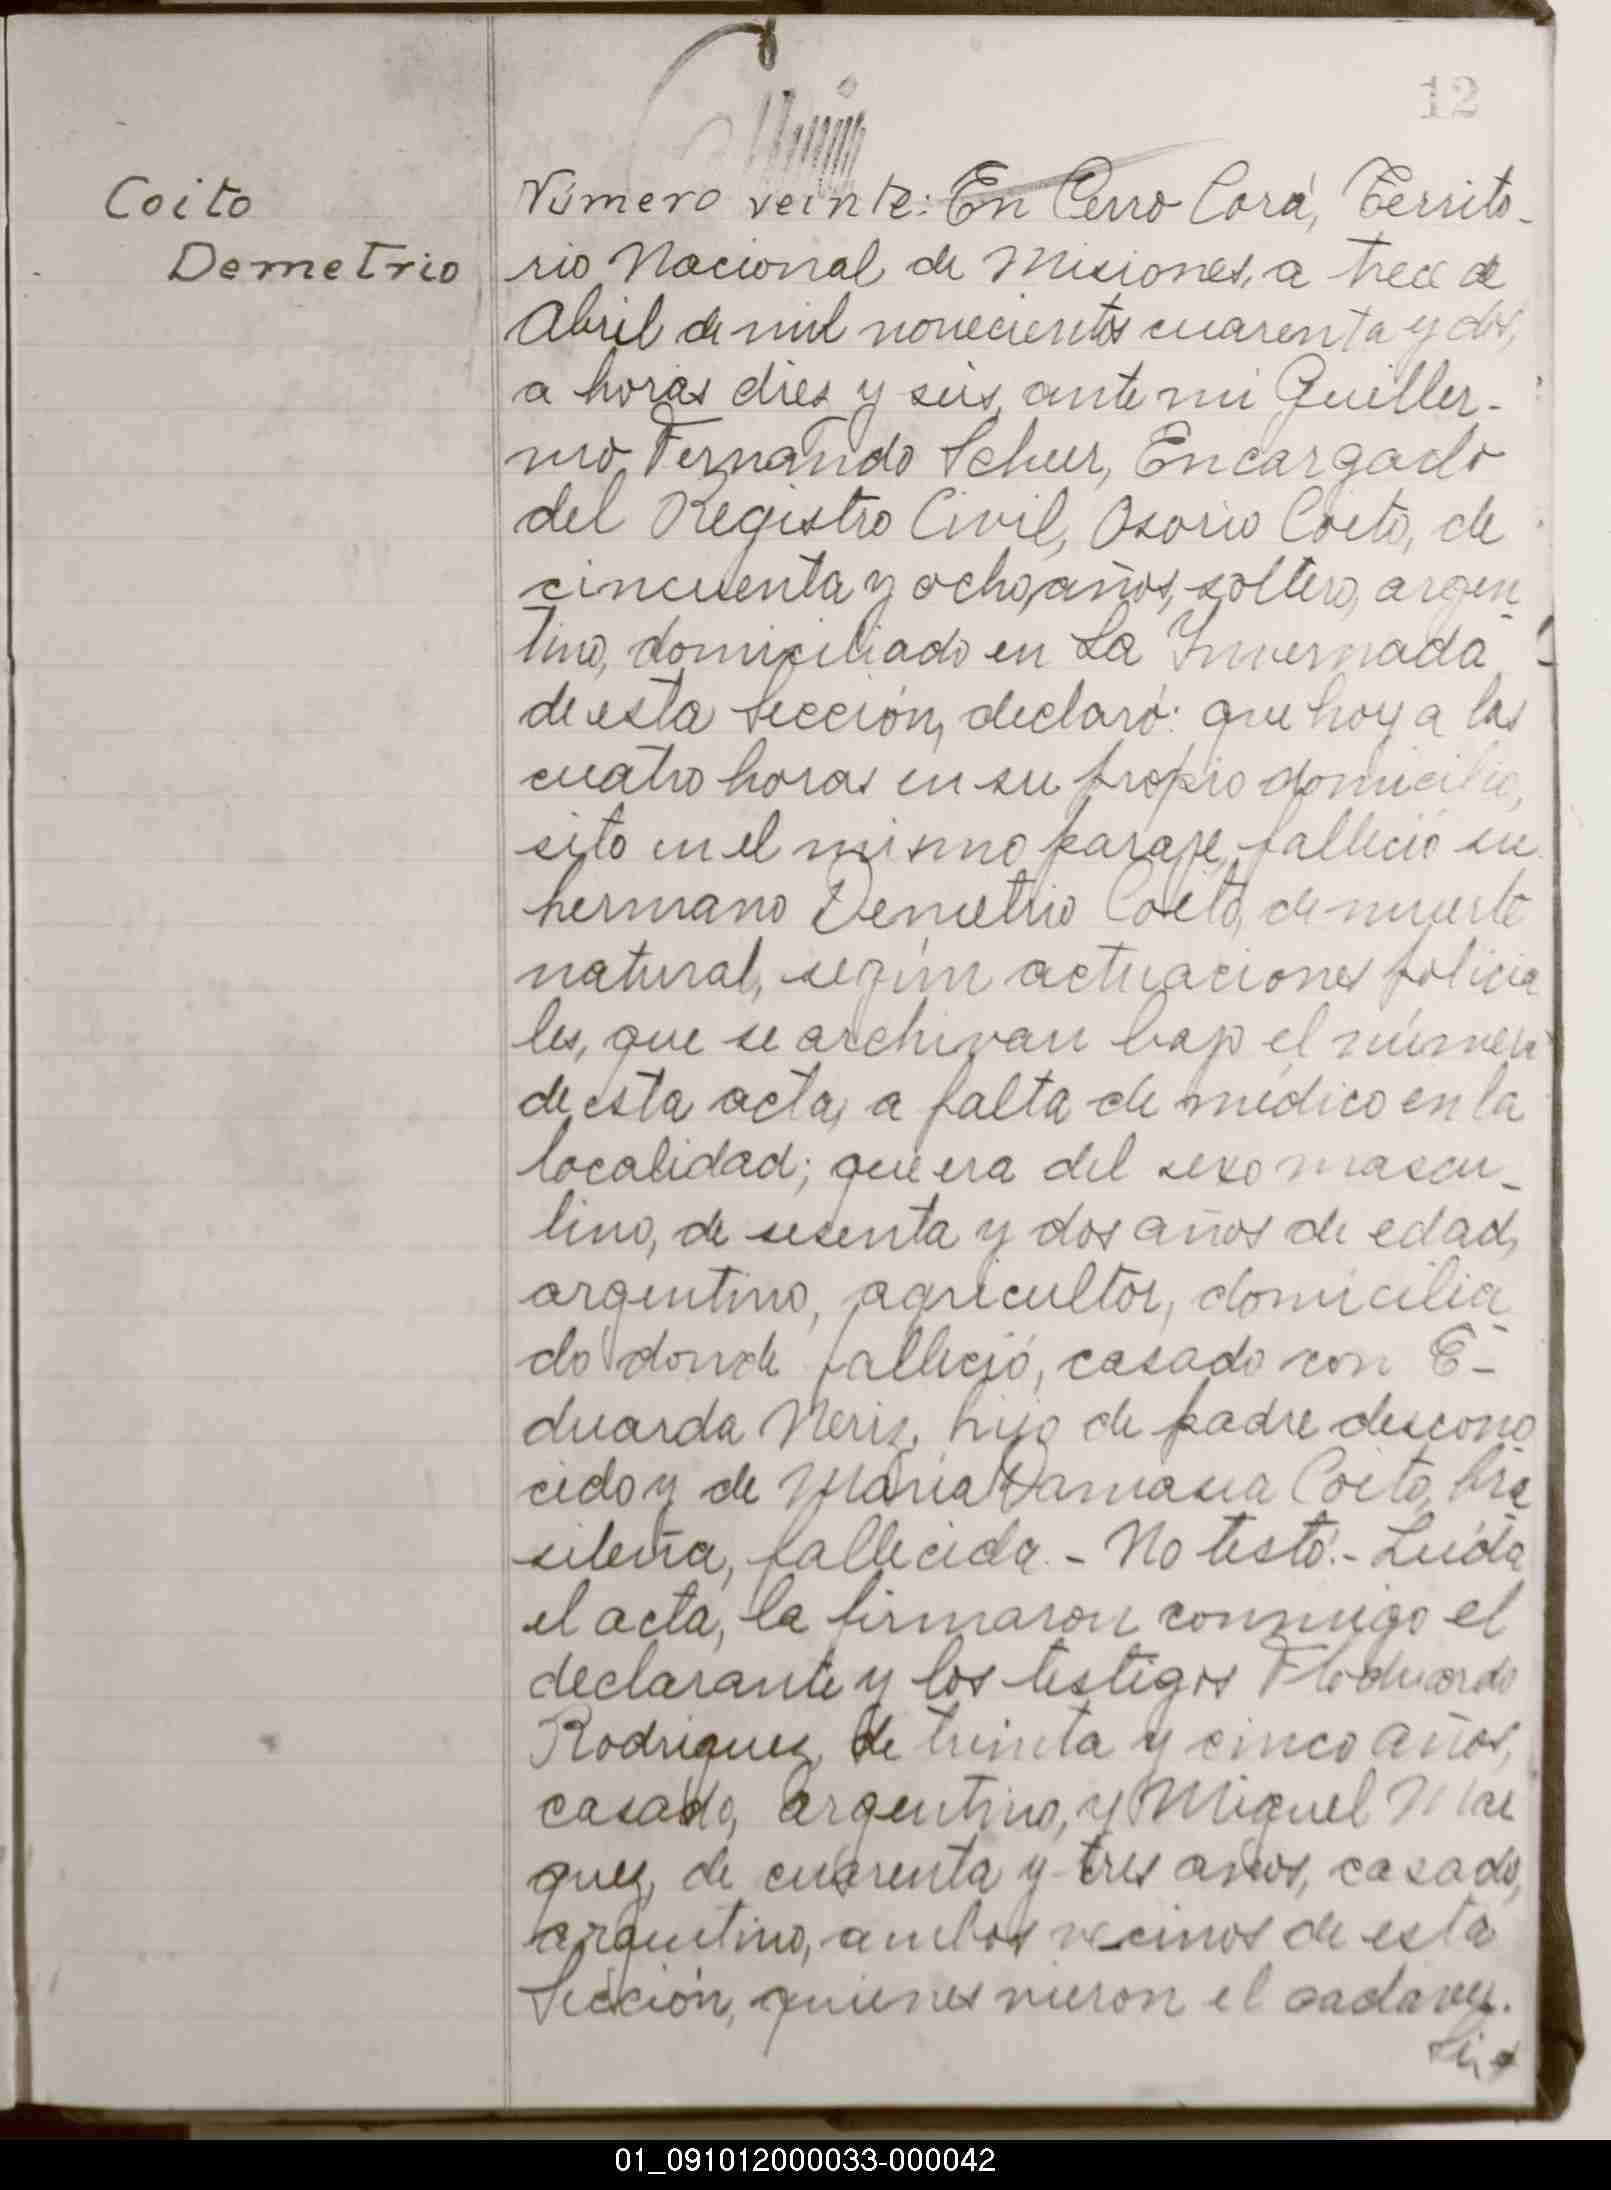 12
Coito
Demetrio
Número veinte: En Cerro Corá, Territo-
rio Nacional de Misiones, a trece de
Abril de mil novecientos cuarenta y dos,
a horas dies y seis, ante mi Guiller-
mo Fernando Scheer, Encargado
del Registro Civil, Osorio Coito, de
cincuenta y ocho años, soltero, argen
tino, domiciliado en La Invernada
de esta Sección, declaró: que hoy a las
cuatro horas en su propio domicilio,
sito en el mismo paraje, falleció su
hermano Demetrio Coito, de muerte
natural, según actuaciones policia
les, que se archivan bajo el número
de esta acta, a falta de médico en la
localidad; que era del sexo mascu-
lino, de sesenta y dos años de edad,
argentino, agricultor, domicilia
do donde falleció, casado con E-
duarda Neriz, hijo de padre descono
cido y de María Damasia Coito, bra
sileña, fallecida. - No testó. - Leída
el acta, la firmaron conmigo el
declarante y los testigos Floduardo
Rodriguez, de treinta y cinco años,
casado, argentino, y Miguel Mar
quez, de cuarenta y tres años, casado,
argentino, ambos vecinos de esta
Sección, quienes vieron el cadaver.
01_091012000033-000042